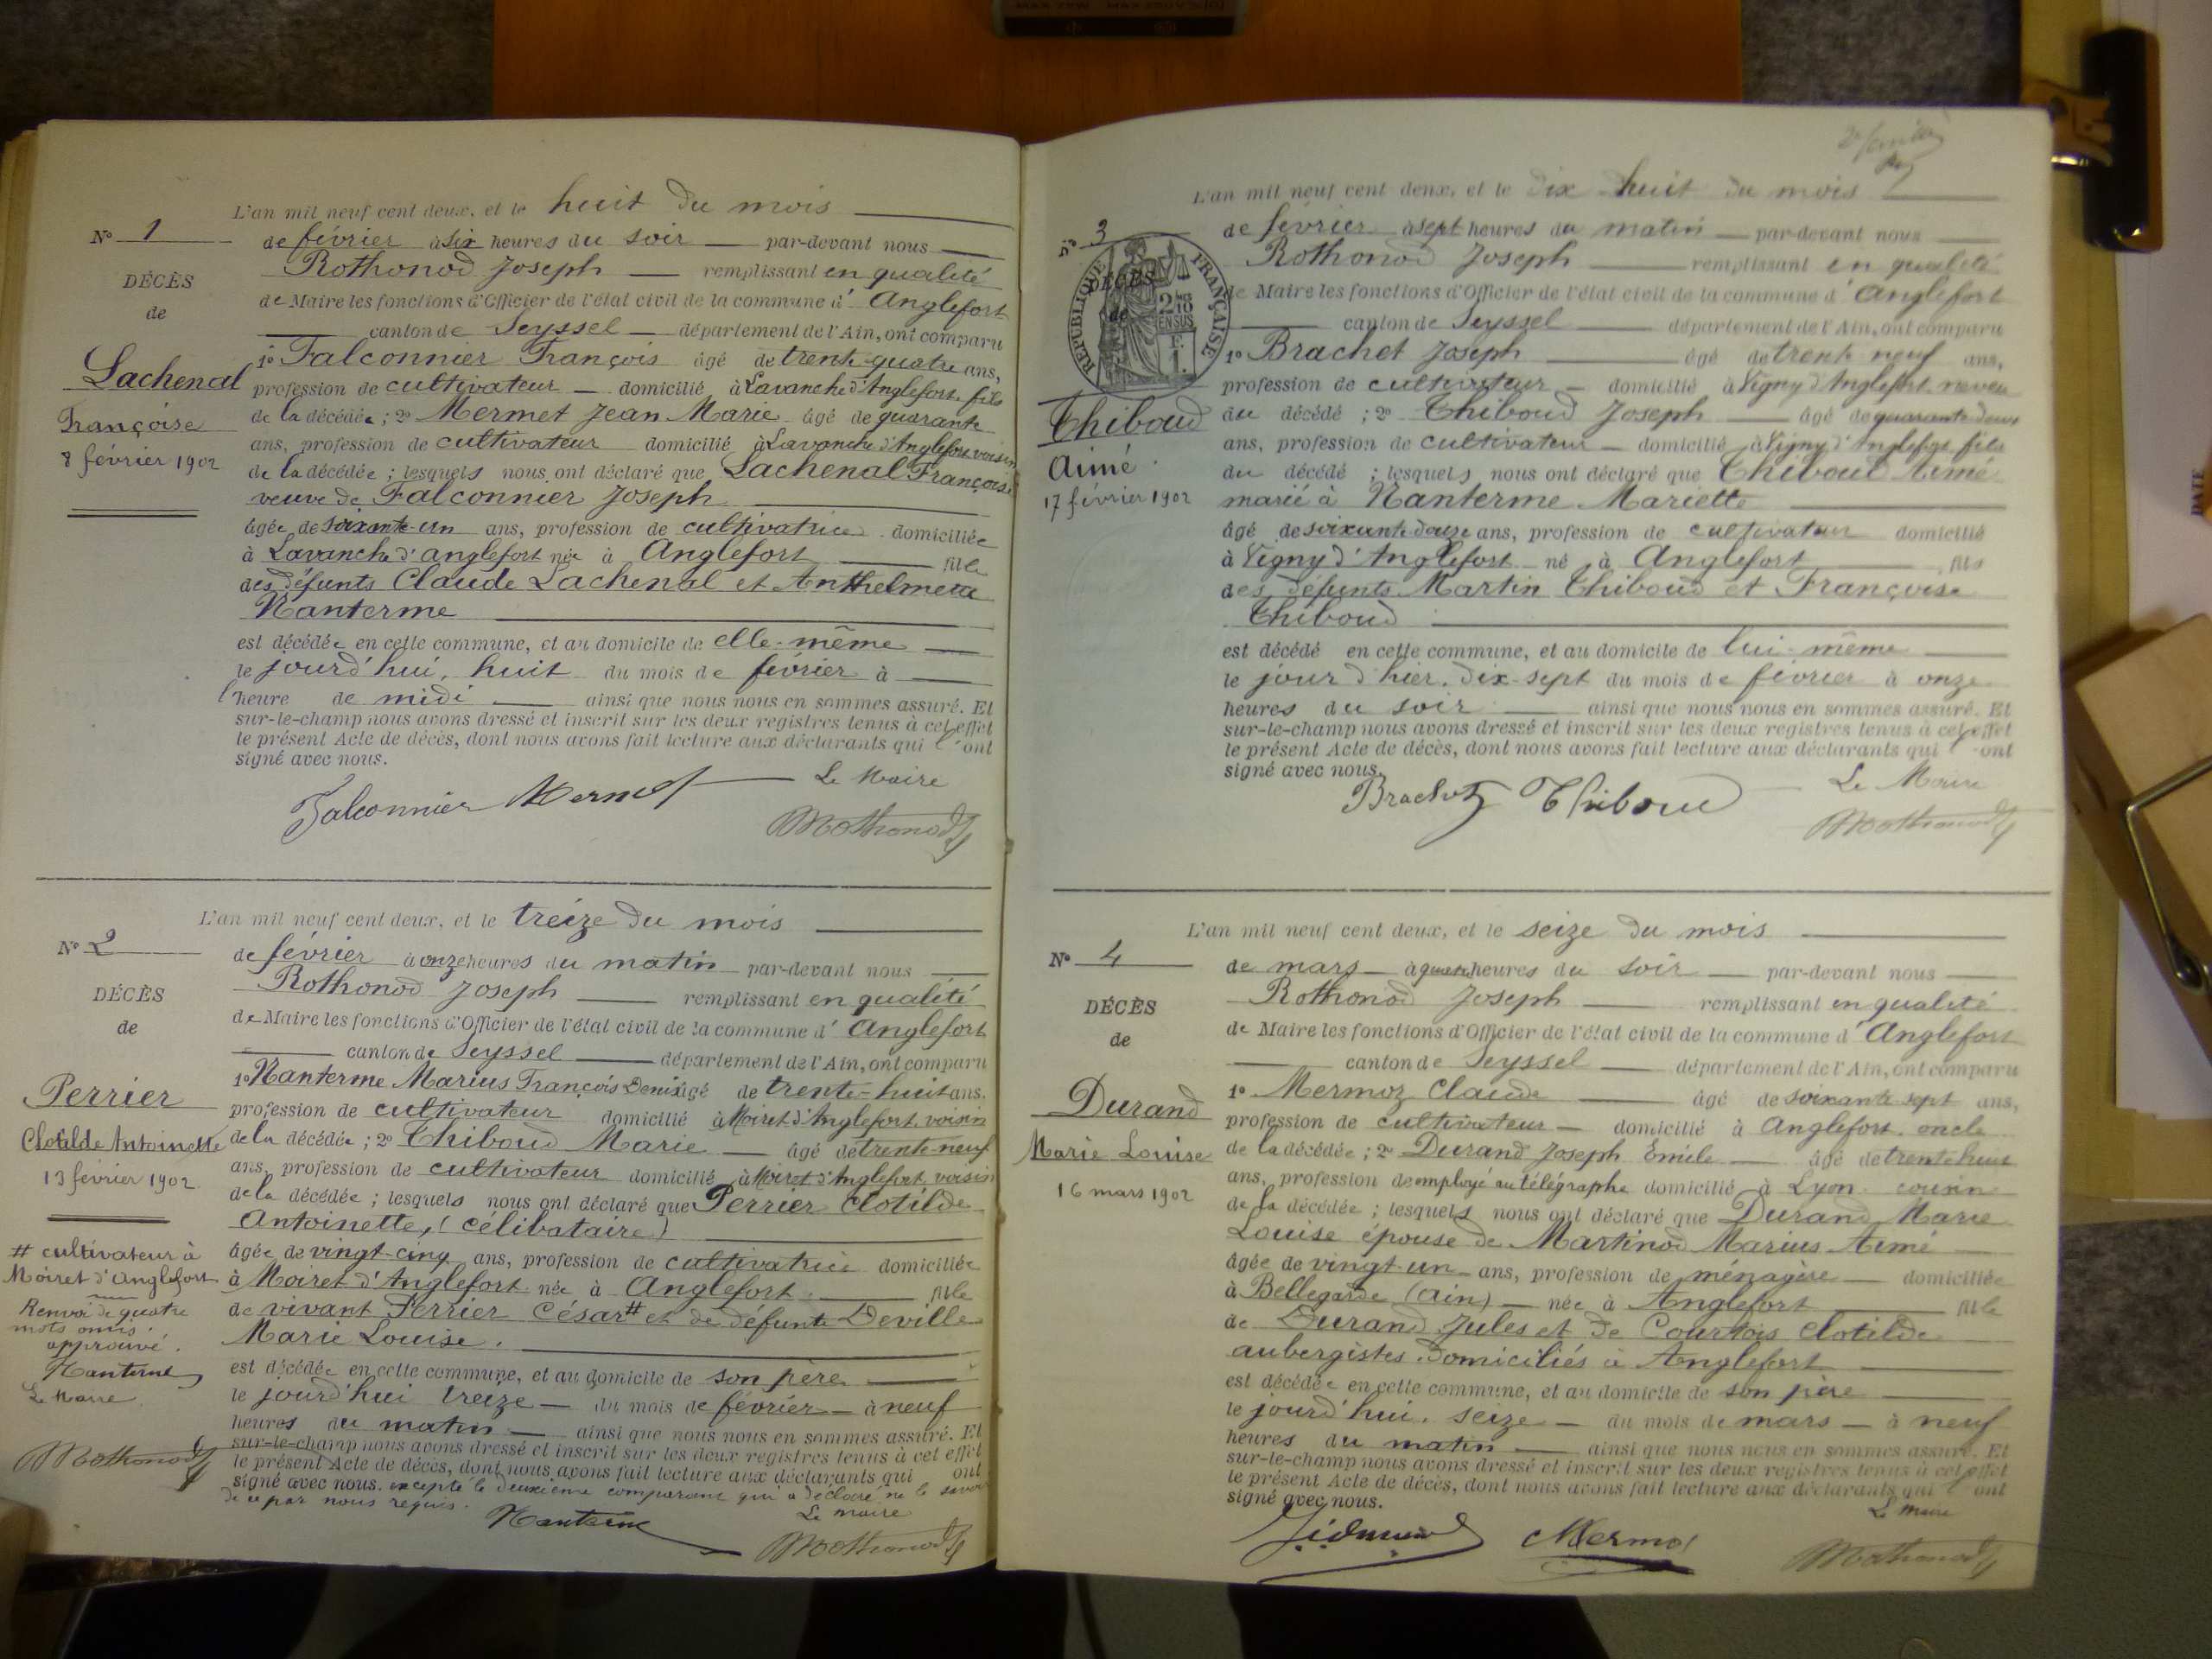 N° 1
DÉCÈS
de
Lachenal
Françoise
8 février 1902
L'an mil neuf cent deux, et le huit du mois
de février à six heures du soir par-devant nous
Rothonod Joseph remplissant en qualité
de Maire les fonctions d'Officier de l'état civil de la commune d' Anglefort
canton de Seyssel département de l'Ain, ont comparu
1° Falconnier François âgé de trente-quatre ans,
profession de cultivateur domicilié à Lavanche d'Anglefort fils
de la décédée ; 2° Mermet Jean Marie âgé de quarante
ans, profession de cultivateur domicilié à Lavanche d'Anglefort voisin
de la décédée ; lesquels nous ont déclaré que Lachenal Françoise
veuve de Falconnier Joseph
âgée de soixante-un ans, profession de cultivatrice domiciliée
à Lavanche d'anglefort née à Anglefort fille
des défunts Claude Lachenal et Anthelmette
Nanterme
est décédée en cette commune, et au domicile de elle-même
le jourd'hui, huit du mois de février à
l'heure de midi ainsi que nous nous en sommes assuré. Et
sur-le-champ nous avons dressé et inscrit sur les deux registres tenus à cet effet
le présent Acte de décès, dont nous avons fait lecture aux déclarants qui l'ont
signé avec nous.
Le Maire
Falconnier Mermet
Rothonod
N° 2
DÉCÈS
de
Perrier
Clotilde Antoinette
13 février 1902
# cultivateur à
Moiret d'Anglefort
Renvoi de quatre
mots omis
approuvé.
Nanterme
Le Maire
Rothonod
L'an mil neuf cent deux, et le treize du mois
de février à onze heures du matin par-devant nous
Rothonod Joseph remplissant en qualité
de Maire les fonctions d'Officier de l'état civil de la commune d' Anglefort
canton de Seyssel département de l'Ain, ont comparu
1° Nanterme Marius François Denis âgé de trente-huit ans,
profession de cultivateur domicilié à Moiret d'Anglefort voisin
de la décédée ; 2° Thiboud Marie âgé de trente-neuf
ans, profession de cultivateur domicilié à Moiret d'Anglefort voisin
de la décédée ; lesquels nous ont déclaré que Perrier Clotilde
Antoinette, (célibataire)
âgée de vingt-cinq ans, profession de cultivatrice domiciliée
à Moiret d'Anglefort née à Anglefort fille
de vivant Perrier César # et de défunte Deville
Marie Louise.
est décédée en cette commune, et au domicile de son père
le jourd'hui treize du mois de février à neuf
heures du matin ainsi que nous nous en sommes assuré. Et
sur-le-champ nous avons dressé et inscrit sur les deux registres tenus à cet effet
le présent Acte de décès, dont nous avons fait lecture aux déclarants qui ont
signé avec nous. excepté le deuxième comparant qui a déclaré ne le savoir
de ce par nous requis.
Le maire
Nanterme
Rothonod
2e feuillet
N° 3
RÉPUBLIQUE FRANÇAISE
DÉCÈS
de
2/10 EN SUS
Thiboud
Aimé
17 février 1902
L'an mil neuf cent deux, et le dix huit du mois
de février à sept heures du matin par-devant nous
Rothonod Joseph remplissant en qualité
de Maire les fonctions d'Officier de l'état civil de la commune d' Anglefort
canton de Seyssel département de l'Ain, ont comparu
1° Brachet Joseph âgé de trente neuf ans,
profession de cultivateur domicilié à Vigny d'Anglefort neveu
du décédé ; 2° Thiboud Joseph âgé de quarante deux
ans, profession de cultivateur domicilié à Vigny d'Anglefort fils
du décédé ; lesquels nous ont déclaré que Thiboud Aimé
marié à Nanterme Mariette
âgé de soixante-douze ans, profession de cultivateur domicilié
à Vigny d'Anglefort né à Anglefort fils
des défunts Martin Thiboud et Françoise
Thiboud
est décédé en cette commune, et au domicile de lui-même
le jour d'hier, dix-sept du mois de février à onze
heures du soir ainsi que nous nous en sommes assuré. Et
sur-le-champ nous avons dressé et inscrit sur les deux registres tenus à cet effet
le présent Acte de décès, dont nous avons fait lecture aux déclarants qui l'ont
signé avec nous.
Le Maire
Brachet Thiboud
Rothonod
N° 4
DÉCÈS
de
Durand
Marie Louise
16 mars 1902
L'an mil neuf cent deux, et le seize du mois
de mars à quatre heures du soir par-devant nous
Rothonod Joseph remplissant en qualité
de Maire les fonctions d'Officier de l'état civil de la commune d' Anglefort
canton de Seyssel département de l'Ain, ont comparu
1° Mermoz Claude âgé de soixante-sept ans,
profession de cultivateur domicilié à Anglefort. oncle
de la décédée ; 2° Durand Joseph Emile âgé de trente huit
ans, profession de employé au télégraphe domicilié à Lyon cousin
de la décédée ; lesquels nous ont déclaré que Durand Marie
Louise épouse de Martinod Marius Aimé
âgée de vingt-un ans, profession de ménagère domiciliée
à Bellegarde (Ain) née à Anglefort fille
de Durand Jules et de Courtois Clotilde
aubergistes domiciliés à Anglefort
est décédée en cette commune, et au domicile de son père
le jourd'hui, seize du mois de mars à neuf
heures du matin ainsi que nous nous en sommes assuré. Et
sur-le-champ nous avons dressé et inscrit sur les deux registres tenus à cet effet
le présent Acte de décès, dont nous avons fait lecture aux déclarants qui l'ont
signé avec nous.
Le maire
Mermoz
Rothonod
DATE